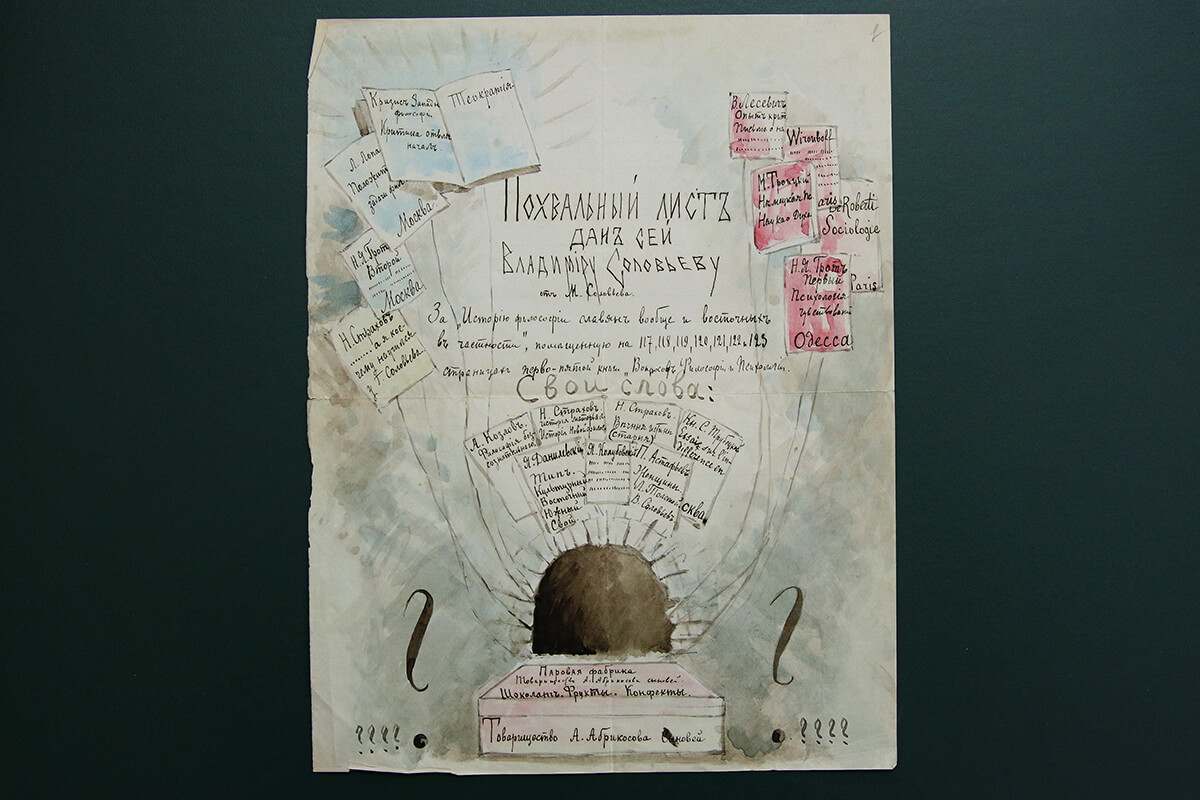 Кризисъ Западн
философи.
Критика отвле
началъ
Теократія
Л. Лопа
Положит
задачи фило
Москва.
Н. Я. Гротъ
Второй
Москва.
Н. Страховъ
а я кое
чему научился
у Г. Соловьева
В. Лесевичъ
Опытъ крит
Письмо о на
Wirouboff
aris
М. Троицкій
Нѣмецкая пс
Наука о Духѣ
De Roberti
Sociologie
Paris
Н. Я. Гротъ
Первый
Психологія
чувствованій
Одесса
Похвальный листъ
данъ сей
Владиміру Соловьеву
отъ М. Соловьева.
За „Исторію философіи славянъ вообще и восточныхъ
въ частности", помѣщенную на 117, 118, 119, 120, 121, 122 и 123
страницахъ перво-пятой книги „Вопросовъ Философіи и Психологіи.
Свои слова:
А. Козловъ.
Философія без
сознательнаго
Н. Страховъ
Исторія
Исторія Новой филос
Н. Страховъ.
Вѣчныя истины
(Старыя)
Кн. С. Трубецк
Essais sur l'in-
différence en
сква.
Я. Данилевскій
Типъ.
Культурный
Восточный
Южный
Свой
Я. Колубовскій
П. Астафьевъ
Женщины
Л. Толстой
В. Соловьевъ
Паровая фабрика
Товарищества А. Абрикосова сыновей
Шоколатъ. Фрукты. Конфекты.
Товарищество А. Абрикосова Сыновей
????
????